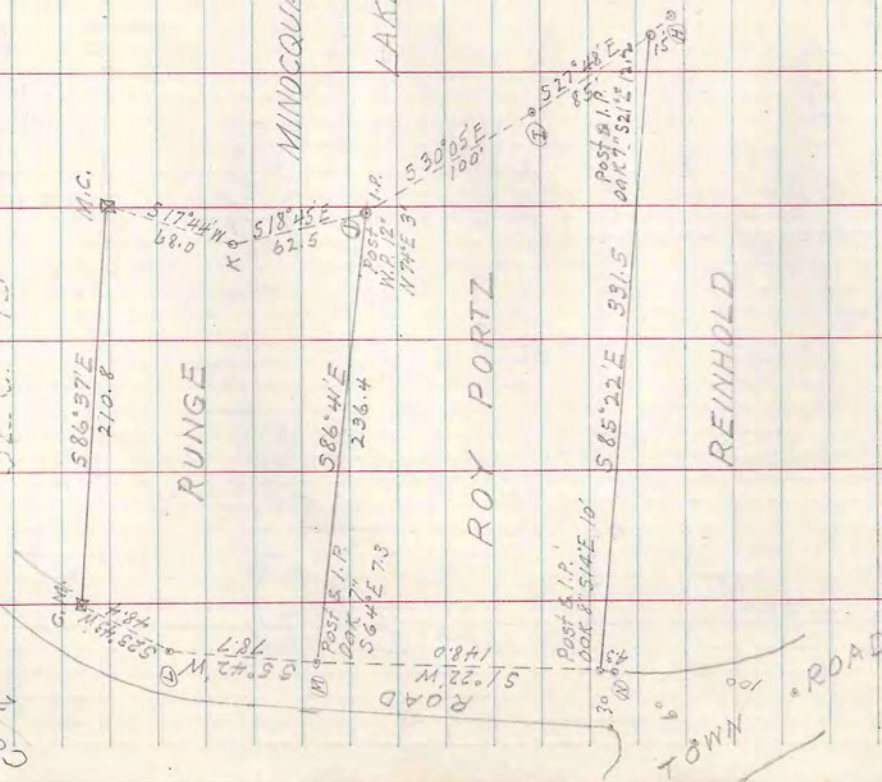 MINOCQUA
LAK
M.C.
S17°44'W
68.0
K
S18°45'E
62.5
J
I.P.
POST
W.P. 12"
N74°E 3'
S30°05'E
100'
I
S27°48'E
85'
15
H
POST & I.P.
OAK 7" S21°E
S86°37'E
210.8
RUNGE
S86°41'E
236.4
ROY PORTZ
S85°22'E 331.5
REINHOLD
48.4
L
S5°42'W
78.7
M
POST & I.P.
OAK 7"
S64°E 7.3
S1°22'W
148.0
ROAD
POST & I.P.
OAK 8" S14°E 10'
4.5
N
30
60
100
TOWN ROAD